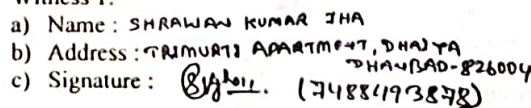 Witness 1:
a) Name : SHRAWAN KUMAR JHA
b) Address : TRIMURTI APARTMENT, DHAIYA
DHANBAD-826004
c) Signature :
(7488493878)